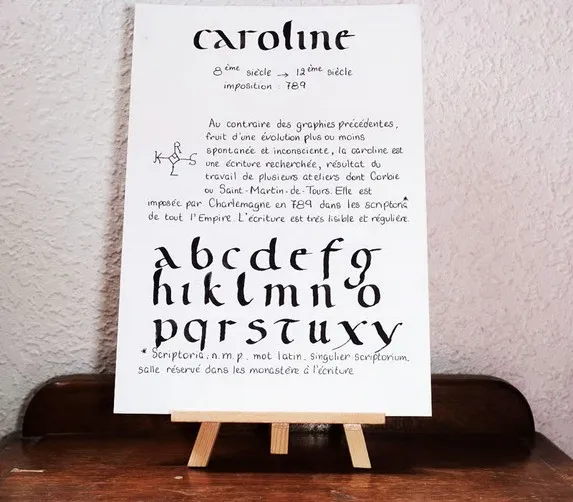 caroline
8ème siècle → 12ème siècle
imposition : 789
Au contraire des graphies précédentes,
fruit d'une évolution plus ou moins
spontanée et inconsciente, la caroline est
une écriture recherchée, résultat du
travail de plusieurs ateliers dont Corbie
ou Saint-Martin-de-Tours. Elle est
imposée par Charlemagne en 789 dans les scriptoria*
de tout l'Empire. L'écriture est très lisible et régulière.
K R S L
a b c d e f g
h i k l m n o
p q r s t u x y
* Scriptoria : n.m.p. mot latin, singulier scriptorium,
salle réservé dans les monastère à l'écriture